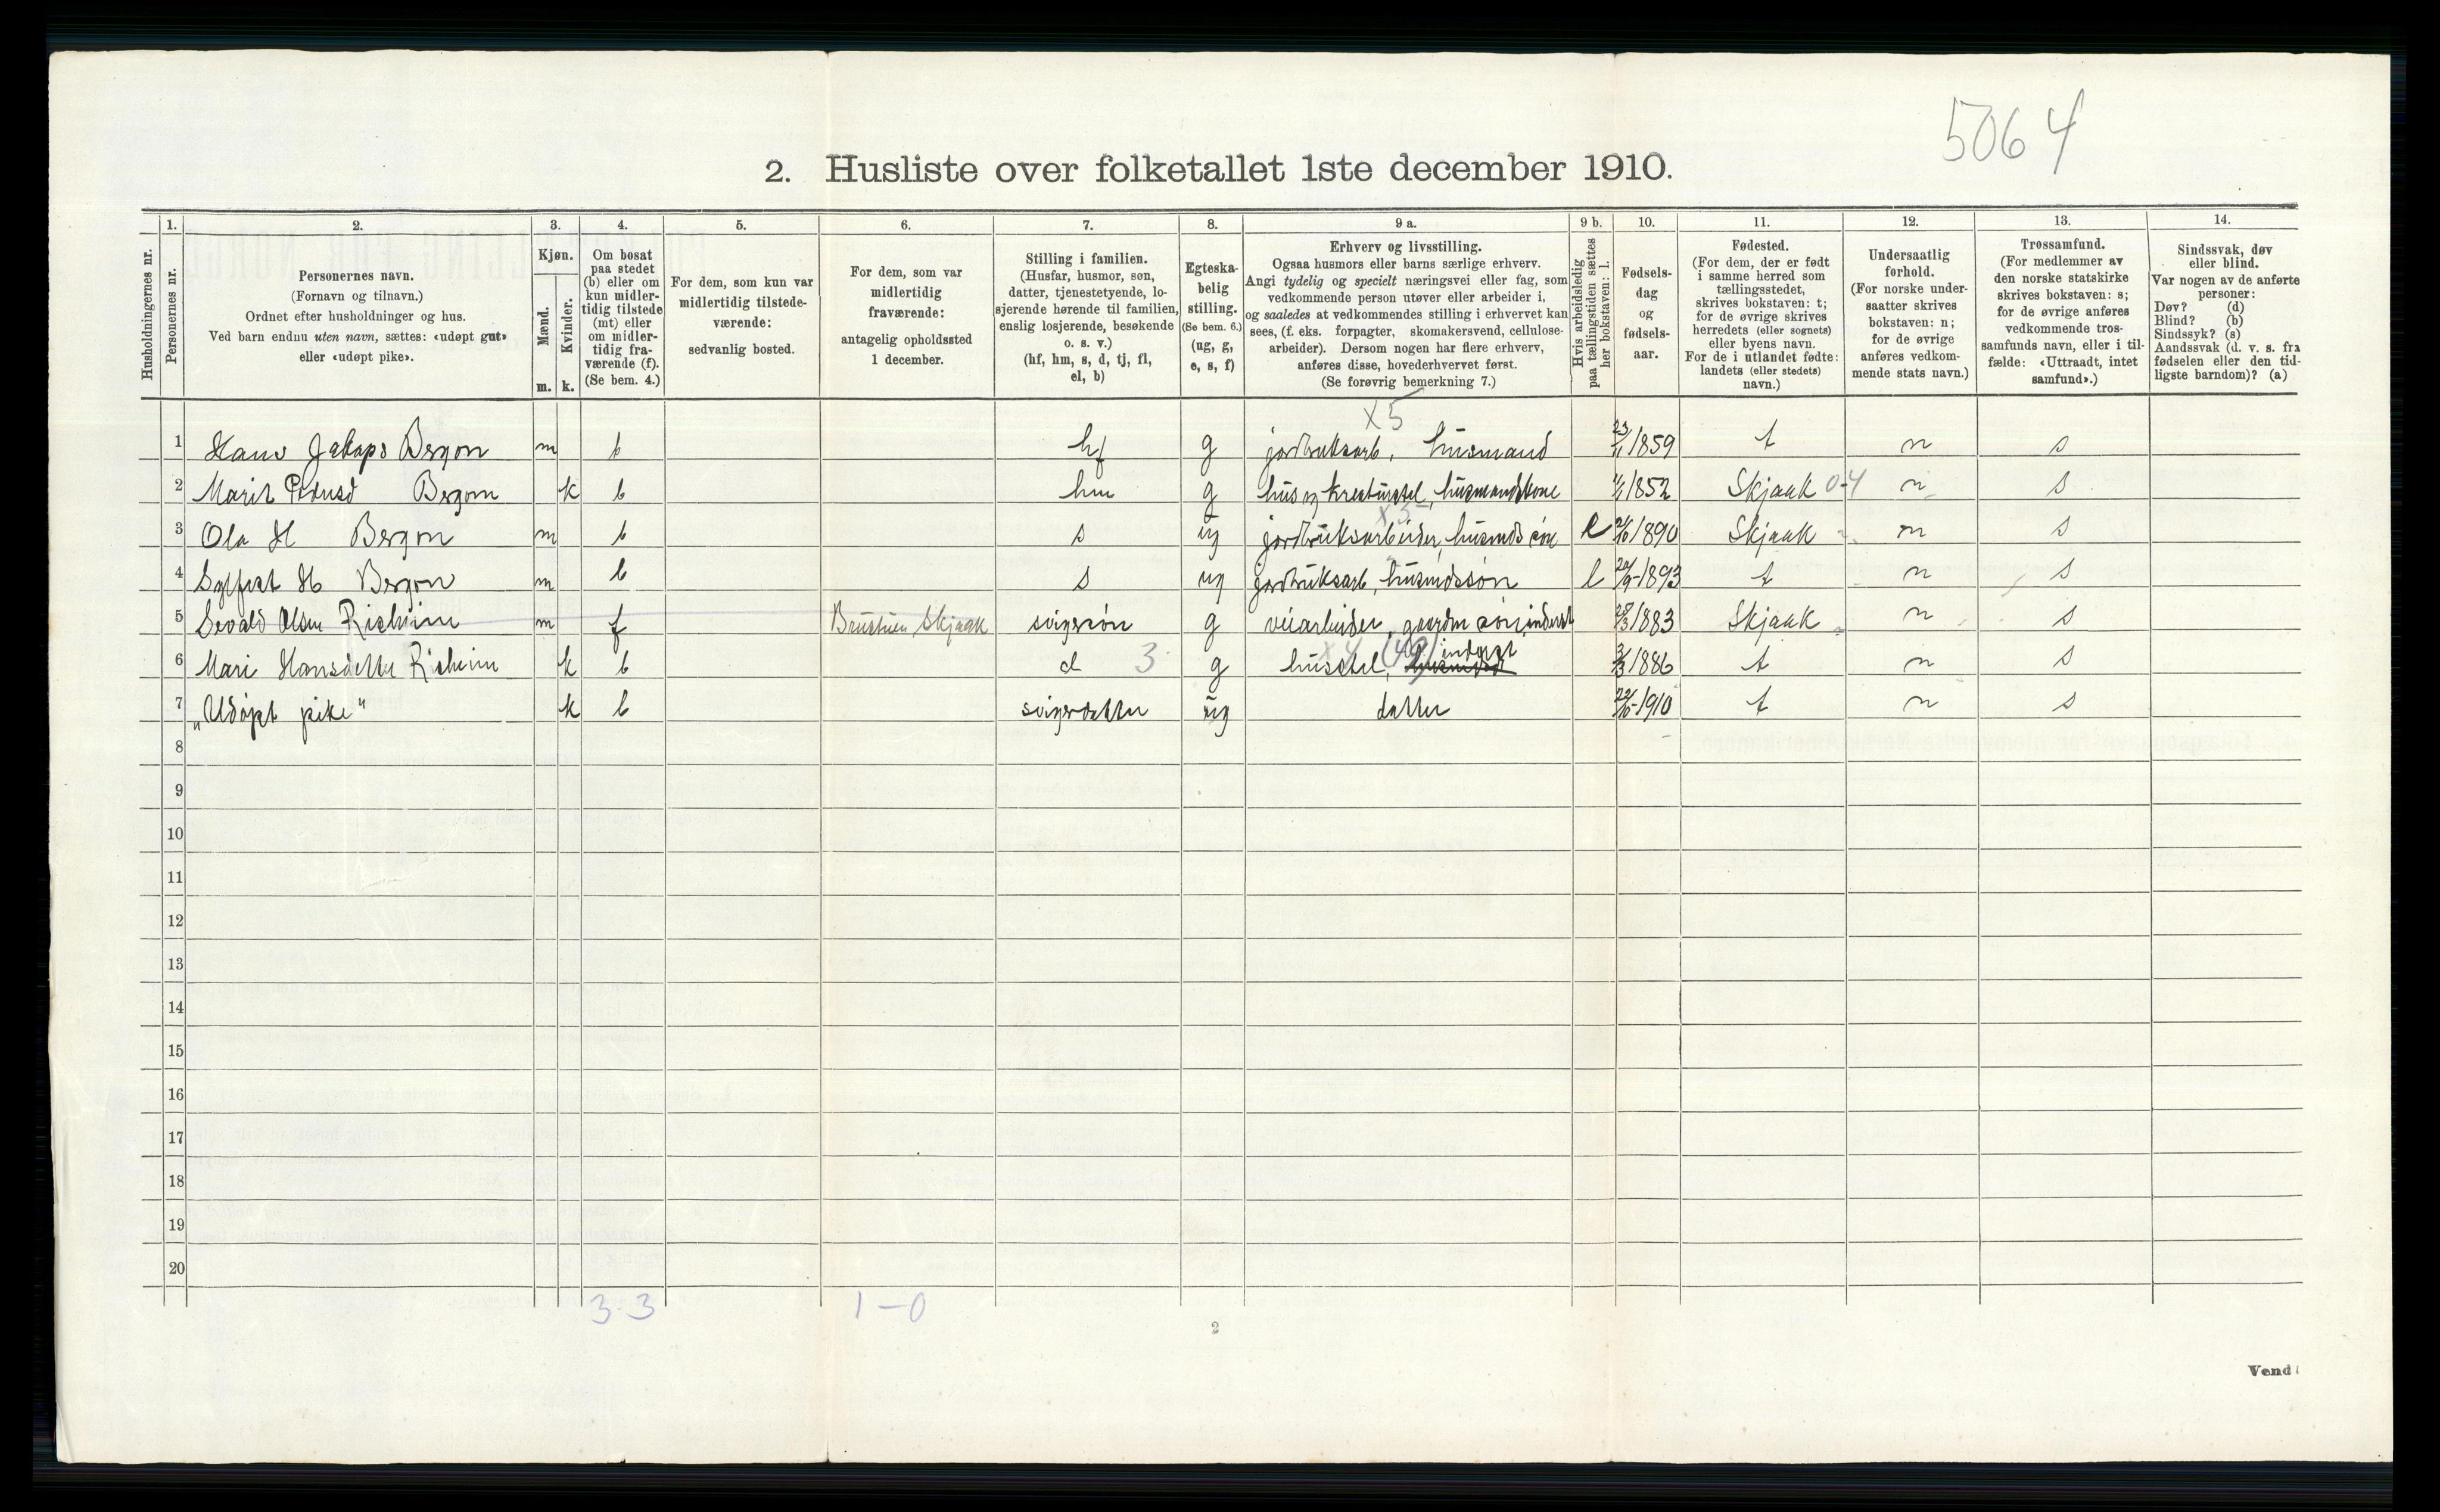 5064
2. Husliste over folketallet 1ste december 1910.
Husholdningernes nr.
1. Personernes nr.
2. Personernes navn.
(Fornavn og tilnavn.)
Ordnet efter husholdninger og hus.
Ved barn endnu uten navn, sættes: «udøpt gut»
eller «udøpt pike».
3. Kjøn.
Mænd. m.
Kvinder. k.
4. Om bosat
paa stedet
(b) eller om
kun midler-
tidig tilstede
(mt) eller
om midler-
tidig fra-
værende (f).
(Se bem. 4.)
5. For dem, som kun var
midlertidig tilstede-
værende:
sedvanlig bosted.
6. For dem, som var
midlertidig
fraværende:
antagelig opholdssted
1 december.
7. Stilling i familien.
(Husfar, husmor, søn,
datter, tjenestetyende, lo-
sjerende hørende til familien,
enslig losjerende, besøkende
o. s. v.)
(hf, hm, s, d, tj, fl,
el, b)
8. Egteska-
belig
stilling.
(Se bem. 6.)
(ug, g,
e, s, f)
9 a. Erhverv og livsstilling.
Ogsaa husmors eller barns særlige erhverv.
Angi tydelig og specielt næringsvei eller fag, som
vedkommende person utøver eller arbeider i,
og saaledes at vedkommendes stilling i erhvervet kan
sees, (f. eks. forpagter, skomakersvend, cellulose-
arbeider). Dersom nogen har flere erhverv,
anføres disse, hovederhvervet først.
(Se forøvrig bemerkning 7.)
9 b. Hvis arbeidsledig
paa tællingstiden sættes
her bokstaven: l.
10. Fødsels-
dag
og
fødsels-
aar.
11. Fødested.
(For dem, der er født
i samme herred som
tællingsstedet,
skrives bokstaven: t;
for de øvrige skrives
herredets (eller sognets)
eller byens navn.
For de i utlandet fødte:
landets (eller stedets)
navn.)
12. Undersaatlig
forhold.
(For norske under-
saatter skrives
bokstaven: n;
for de øvrige
anføres vedkom-
mende stats navn.)
13. Trossamfund.
(For medlemmer av
den norske statskirke
skrives bokstaven: s;
for de øvrige anføres
vedkommende tros-
samfunds navn, eller i til-
fælde: «Uttraadt, intet
samfund».)
14. Sindssvak, døv
eller blind.
Var nogen av de anførte
personer:
Døv? (d)
Blind? (b)
Sindssyk? (s)
Aandssvak (d. v. s. fra
fødselen eller den tid-
ligste barndom)? (a)
x5
1 Hans Bergom m b hf g jordbruksarb. husmand 1859 t n s
2 Marit Bergom k b hm g hus og kreaturstel, husmandskone 1852 Skjaak 0-4 n s
x5
3 Ola H Bergom m b s ug jordbruksarbeider, husmds søn l 1890 Skjaak n s
4 H Bergom m b s ug jordbruksarb, husmdssøn l 1893 t n s
5 Sevald Olsen Risheim m f Skjaak svigersøn g veiarbeider, gaardm søn, inderst 28/3 1883 Skjaak n s
6 Mari Hansdatter Risheim k b d 3 g husstel, x4 (49) inderst 3/3 1886 t n s
7 "Udøpt pike" k b svigerdatter ug datter 1910 t n s
8
9
10
11
12
13
14
15
16
17
18
19
20
3-3 1-0
2
Vend!